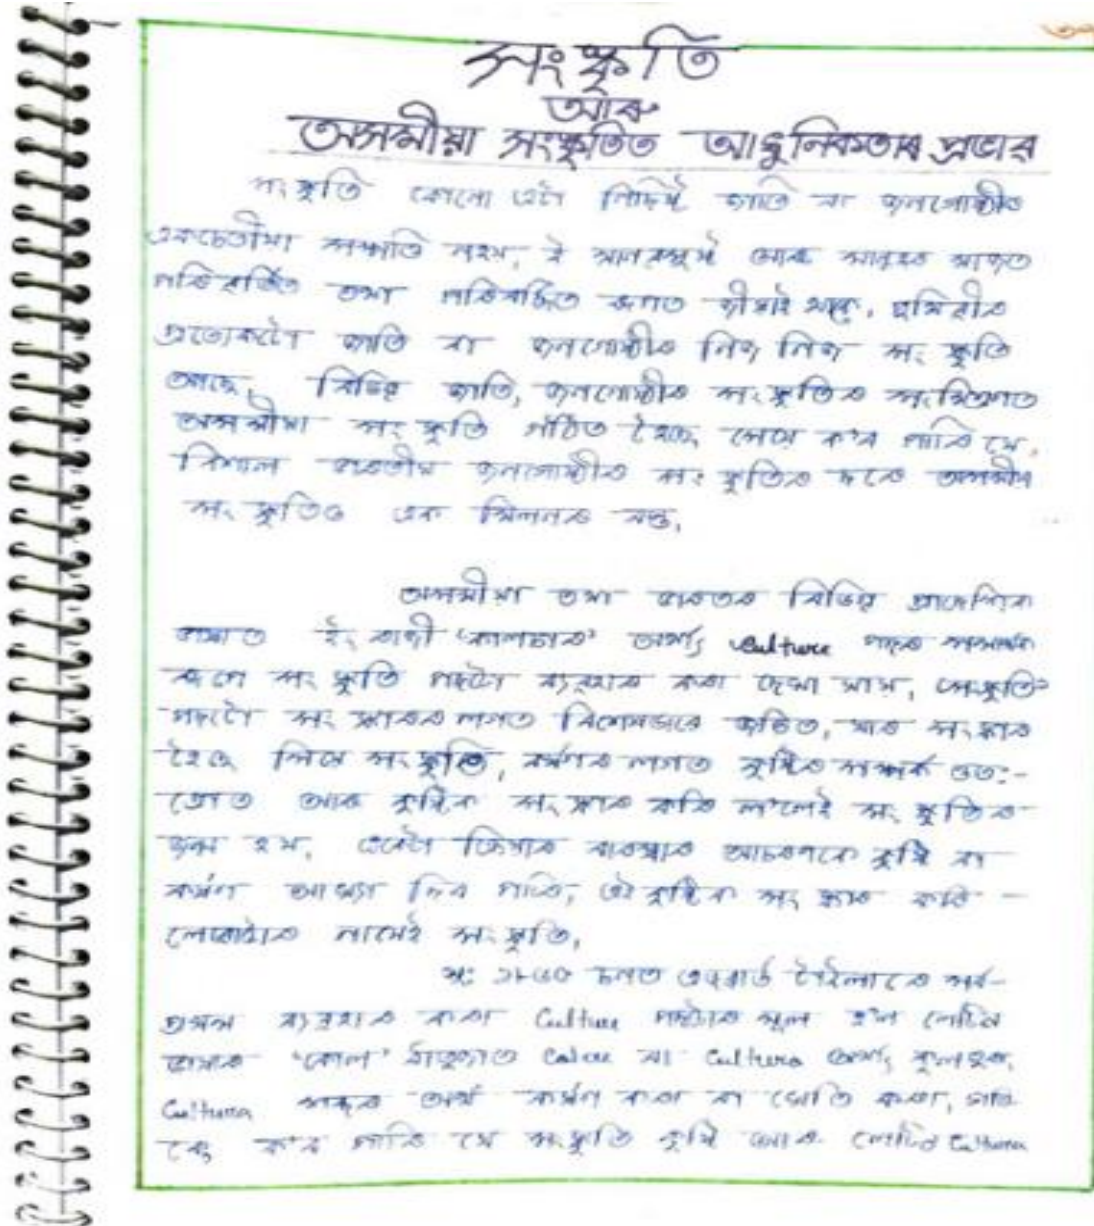 সংস্কৃতি
আৰু
অসমীয়া সংস্কৃতিত আধুনিকতাৰ প্ৰভাৱ
সংস্কৃতি কোনো এটা নিৰ্দিষ্ট জাতি বা জনগোষ্ঠীৰ
একচেতীয়া সম্পত্তি নহয়, ই মানৱসৃষ্ট আৰু মানুহৰ মাজত
পৰিৱৰ্তিত তথা পৰিবৰ্দ্ধিত ৰূপত জীয়াই থাকে, পৃথিৱীৰ
প্ৰত্যেকটো জাতি বা জনগোষ্ঠীৰ নিজ নিজ সংস্কৃতি
আছে, বিভিন্ন জাতি, জনগোষ্ঠীৰ সংস্কৃতিৰ সংমিশ্ৰণত
অসমীয়া সংস্কৃতি গঠিত হৈছে সেয়ে ক'ব পাৰি যে,
বিশাল ভাৰতীয় জনগোষ্ঠীৰ সংস্কৃতিৰ দৰে অসমীয়
সংস্কৃতিও এক মিলনৰ বস্তু,
অসমীয়া তথা ভাৰতৰ বিভিন্ন প্ৰাদেশিক
ভাষাত ইংৰাজী 'কালচাৰ' অৰ্থাৎ Culture শব্দৰ সমাৰ্থক
ৰূপে সংস্কৃতি শব্দটো ব্যৱহাৰ কৰা দেখা যায়, 'সংস্কৃতি'
শব্দটো সংস্কাৰৰ লগত বিশেষভাৱে জড়িত, যাৰ সংস্কাৰ
হৈছে সিয়ে সংস্কৃতি, কৰ্ষণৰ লগত কৃষ্টিৰ সম্পৰ্ক ওতঃ-
প্ৰোত আৰু কৃষ্টিক সংস্কাৰ কৰি ল'লেই সংস্কৃতিৰ
জন্ম হয়, এটা ক্ৰিয়াৰ বাৰম্বাৰ আচৰণকে কৃষ্টি বা
কৰ্ষণ আখ্যা দিব পাৰি, এই কৃষ্টিক সংস্কাৰ কৰি -
লোৱাটোৰ নামেই সংস্কৃতি,
চনত এডৱাৰ্ড টাইলাৰে সৰ্ব-
প্ৰথম ব্যৱহাৰ কৰা Culture শব্দটোৰ মূল হ'ল লেটিন
ভাষাৰ 'কোল' ধাতুজাত বা Cultura অৰ্থাৎ
Cultura শব্দৰ অৰ্থ কৰ্ষণ কৰা বা খেতি কৰা,
ক'ব পাৰি যে সংস্কৃতি কৃষ্টি আৰু লেটিন Cultura